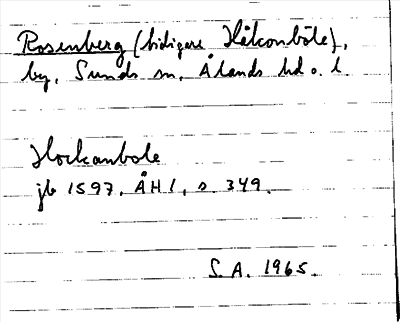 Rosenberg (tidigare Håkonböle),
by, Sunds sn, Ålands hd o. l.
Hockanbole
jb 1597. ÅH1, s. 349.
S. A. 1965.